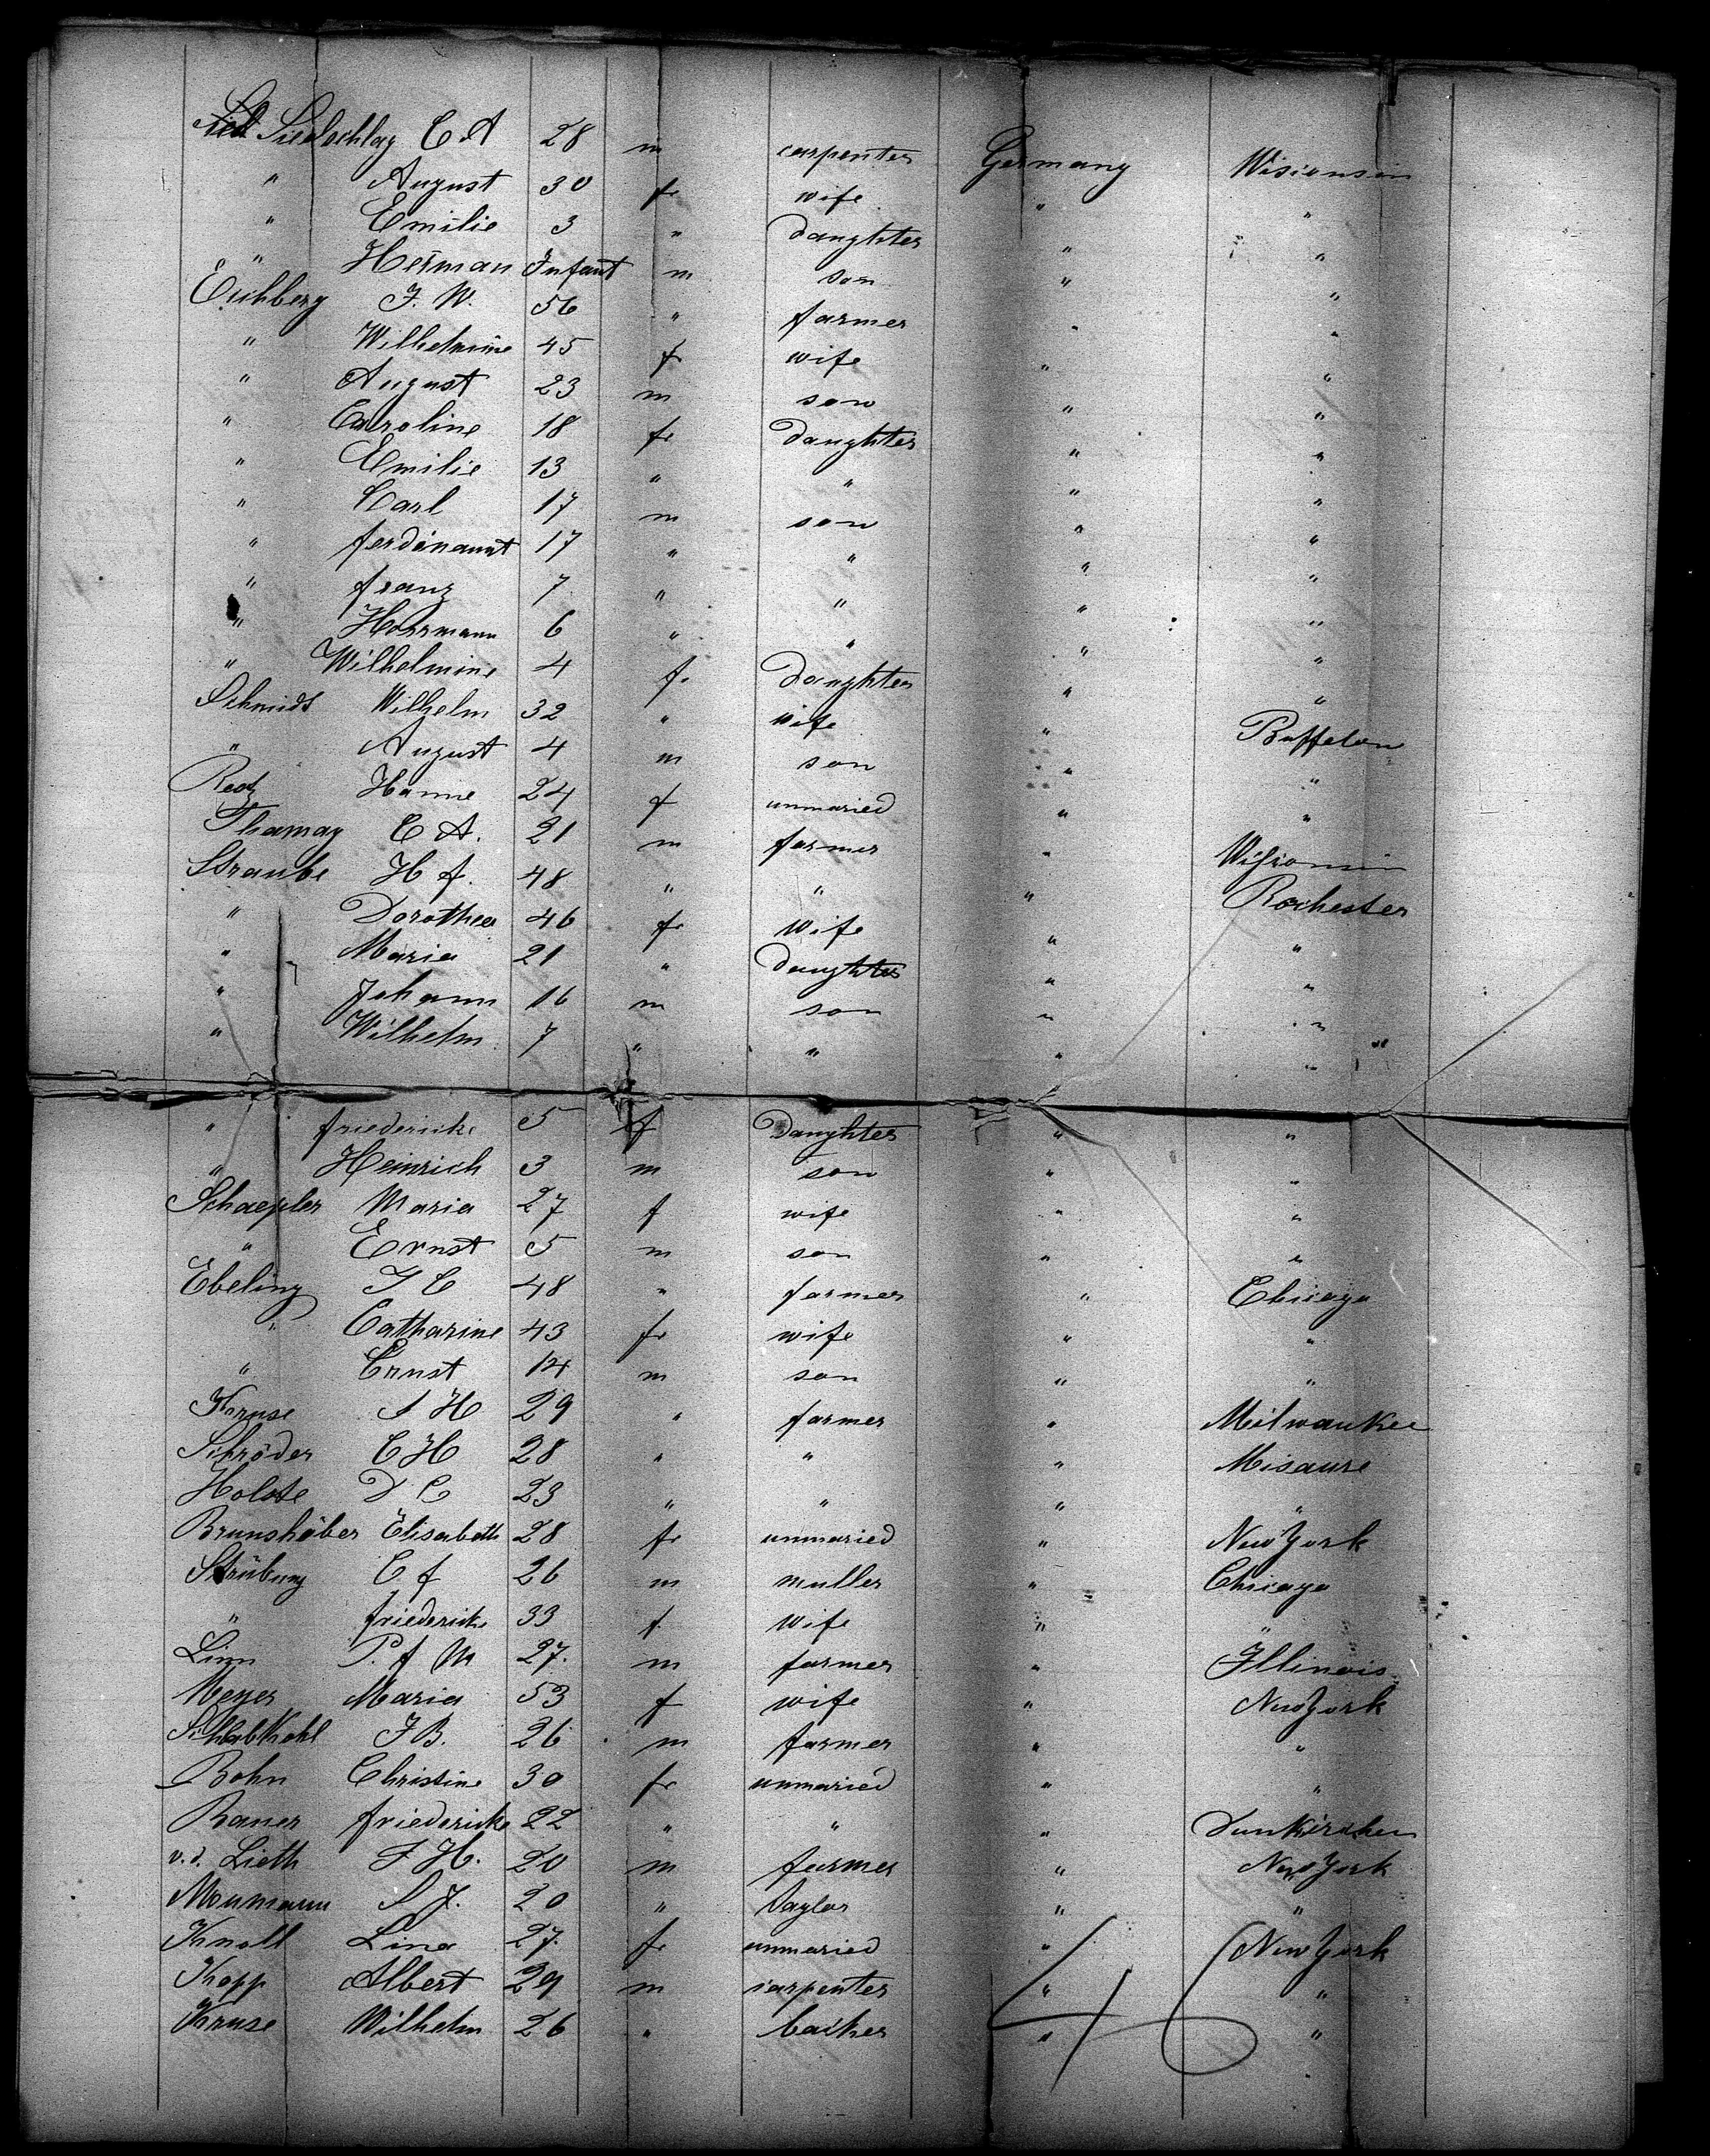 Siedschlag C A 28 m carpenter Germany Wisconsin
" August 30 fr wife " "
" Emilie 3 " daughter " "
" Herman Infant m son " "
Eichberg F. W. 56 " farmer " "
" Wilhelmine 45 f wife " "
" August 23 m son " "
" Caroline 18 fr daughter " "
" Emilie 13 " " " "
" Carl 17 m son " "
" ferdinannt 17 " " " "
" franz 7 " " " "
" Herrmann 6 " " " "
" Wilhelmine 4 f. daughter " "
Schmidt Wilhelm 32 " wife " Buffelow
" August 4 m son " "
Redz Hanne 24 f unmaried " "
Thamay C A. 21 m farmer " Wisconsin
Straube H f. 48 " " " Rochester
" Dorothea 46 fr wife " "
" Maria 21 " daughter " "
" Johann 16 m son " "
" Wilhelm 7 " " " "
" friedericke 5 f daughter " "
" Heinrich 3 m son " "
Schaepler Maria 27 f wife " "
" Ernst 5 m son " "
Ebeling J C 48 " farmer " Chicago
" Catharine 43 fr wife " "
" Ernst 14 m son " "
Kruse J H 29 " farmer " Milwaukee
Schröder C H 28 " " " Misaure
Holste D C 23 " " " "
Brunshöber Elisabeth 28 fr unmaried " New York
Strübung C f 26 m muller " Chicago
" friedericke 33 f. wife " "
Linn P. f W 27. m farmer " Illinois
Meyer Maria 53 f wife " New York
Schlabkohl J B. 26 m farmer " "
Bohn Christine 30 fr unmaried " "
Bauer friedericke 22 " " " Dunkirchen
v. d. Lieth J H. 20 m farmer " New York
Monmann S J. 20 " taylor " "
Knoll Lina 27. fr unmaried " New York
Kopp Albert 29 m carpenter " "
Kruse Wilhelm 26 " backer " "
46